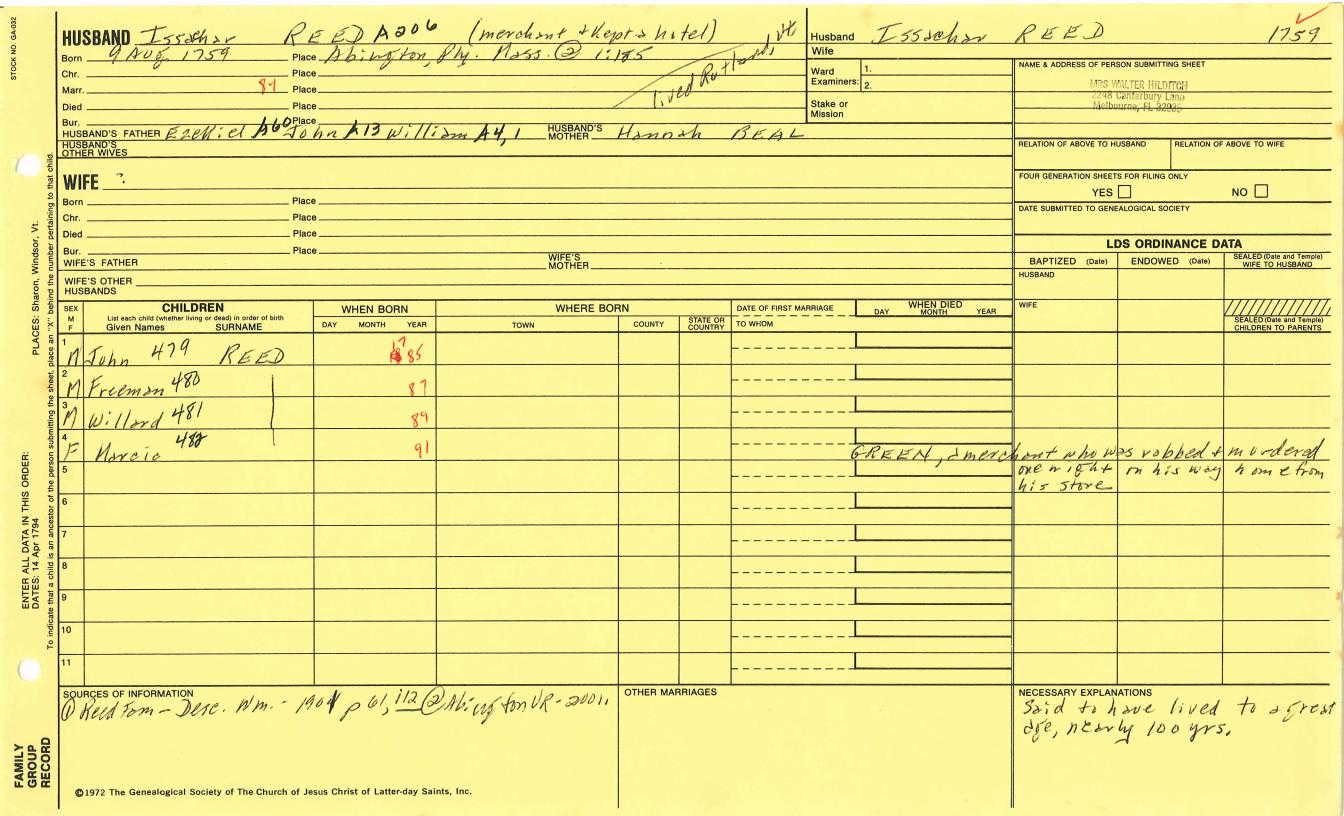 STOCK NO. GA-032
HUSBAND Issachar REED A206 (merchant + kept a hotel)
Born 9 Aug 1759 Place Abington, Ply. Mass. ② 1:185
Chr. Place
Marr. 84 Place
Died Place
Bur. Place
lived Rutland, Vt
HUSBAND'S FATHER Ezekiel A60 John A13 William A4,1 HUSBAND'S MOTHER Hannah BEAL
HUSBAND'S OTHER WIVES
WIFE ?
Born Place
Chr. Place
Died Place
Bur. Place
WIFE'S FATHER WIFE'S MOTHER
WIFE'S OTHER HUSBANDS
Husband Issachar REED 1759
Wife
Ward Examiners: 1.
2.
Stake or Mission
NAME & ADDRESS OF PERSON SUBMITTING SHEET
MRS WALTER HILDITCH
2248 Canterbury Lane
Melbourne, FL 32935
RELATION OF ABOVE TO HUSBAND RELATION OF ABOVE TO WIFE
FOUR GENERATION SHEETS FOR FILING ONLY
YES NO
DATE SUBMITTED TO GENEALOGICAL SOCIETY
LDS ORDINANCE DATA
BAPTIZED (Date) ENDOWED (Date) SEALED (Date and Temple) WIFE TO HUSBAND
HUSBAND
WIFE
SEALED (Date and Temple) CHILDREN TO PARENTS
SEX M F CHILDREN WHEN BORN WHERE BORN DATE OF FIRST MARRIAGE WHEN DIED
List each child (whether living or dead) in order of birth
Given Names SURNAME DAY MONTH YEAR TOWN COUNTY STATE OR COUNTRY TO WHOM DAY MONTH YEAR
1 M John 479 REED 1785
2 M Freeman 480 87
3 M Willard 481 89
4 F Marcia 482 91 GREEN, a merchant who was robbed + murdered
5 one night on his way home from
his store
6
7
8
9
10
11
SOURCES OF INFORMATION
① Reed Fam - Desc. Wm. - 1901 p 61, i12 ② Abington VR - 2001.
OTHER MARRIAGES
NECESSARY EXPLANATIONS
Said to have lived to a great
age, nearly 100 yrs.
©1972 The Genealogical Society of The Church of Jesus Christ of Latter-day Saints, Inc.
FAMILY GROUP RECORD
ENTER ALL DATA IN THIS ORDER:
DATES: 14 Apr 1794
PLACES: Sharon, Windsor, Vt.
To indicate that a child is an ancestor of the person submitting the sheet, place an "X" behind the number pertaining to that child.